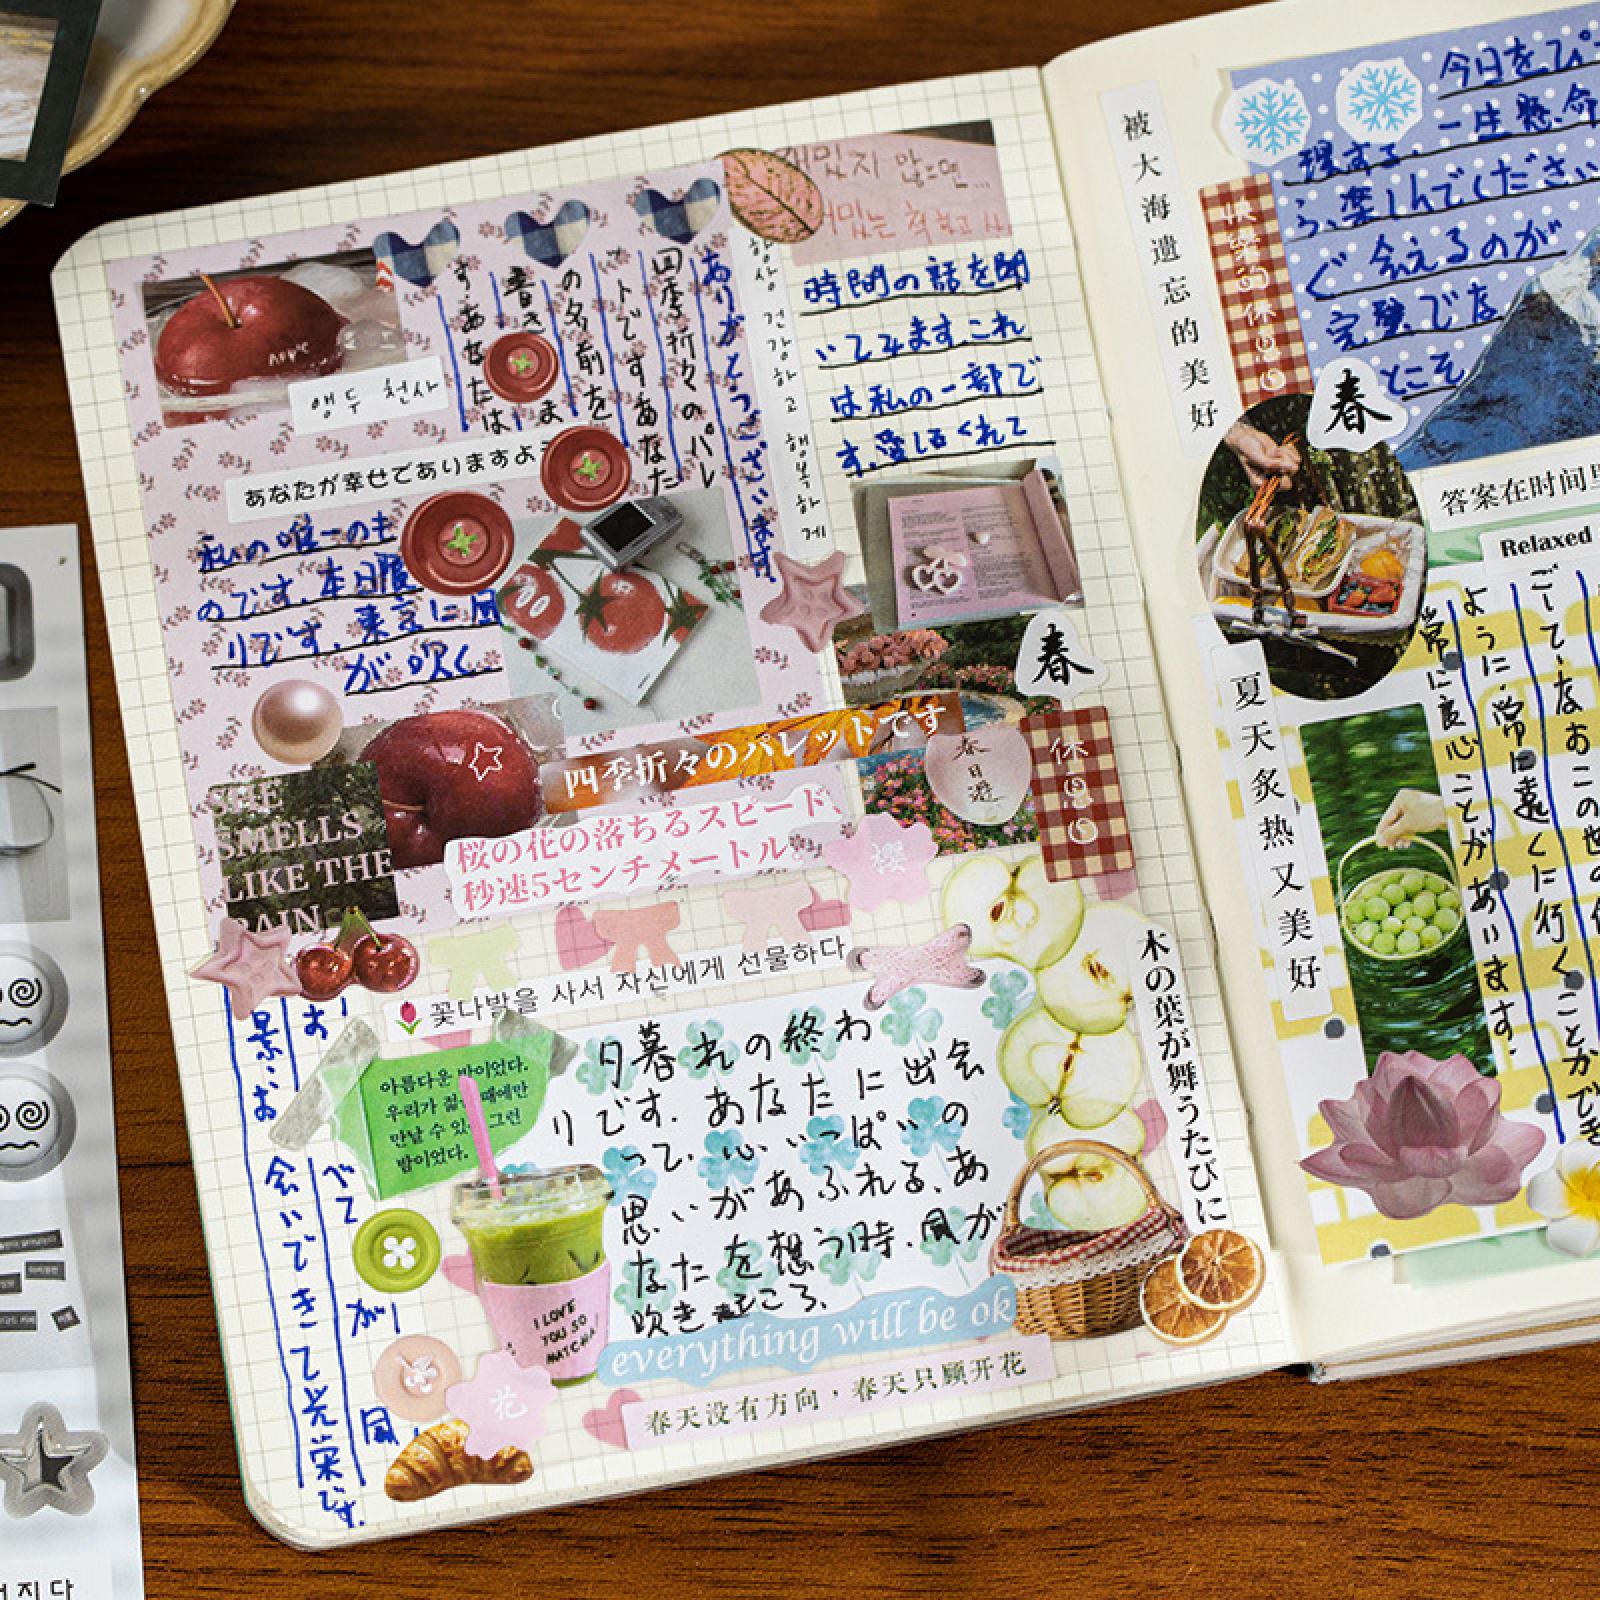 앵두 천사
ありがとうございます
四季折々のパレ
ットです あなた
の名前を
書きま
す.あなたは
あなたが幸せでありますよう
私の唯一のも
のです.本日限
りです.東京に風
が吹く
항상 건강하고 행복하게
時間の話を聞
いてみます.これ
は私の一部で
す.愛しるくれて
春
四季折々のパレットです
春日遊
休息心
SHE
SMELLS
LIKE THE
RAIN
桜の花の落ちるスピード、
秒速5センチメートル。
櫻
꽃다발을 사서 자신에게 선물하다
아름다운 밤이었다.
우리가 젊 때에만
만날 수 있 그런
밤이었다.
夕暮れの終わ
りです.あなたに出会
って.心いっぱいの
思いがあふれる.あ
なたを想う時.風が
吹き
I LOVE
YOU SO
MATCHA!
everything will be ok
春天没有方向，春天只顾开花
花
木の葉が舞うたびに
景.お
会いできて光栄です.
お
べて
が
風
被大海遗忘的美好
快樂的休息心
今日をぴ
一生懸命
現する.
う.楽しんでください
ぐ会えるのが
完璧でな
とこそ
春
答案在时间里
Relaxed
夏天炙热又美好
常に良心ことがあります.
ように.常に遠くに行くことができ
지다